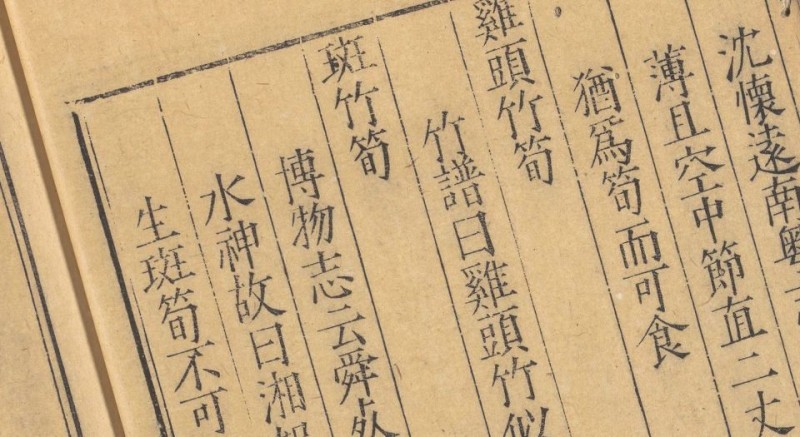 沈懷遠南粵
薄且空中節直二丈
猶為筍而可食
雞頭竹筍
竹譜曰雞頭竹似
斑竹筍
博物志云舜
水神故曰湘
生斑筍不可